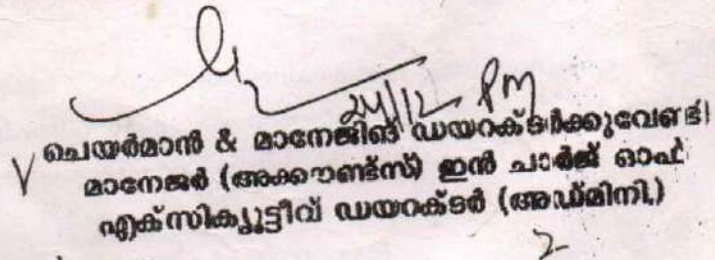 24/12 PM
ചെയർമാൻ & മാനേജിങ് ഡയറക്ടർക്കുവേണ്ടി
മാനേജർ (അക്കൗണ്ട്സ്) ഇൻ ചാർജ് ഓഫ്
എക്സിക്യൂട്ടീവ് ഡയറക്ടർ (അഡ്മിനി.)
2